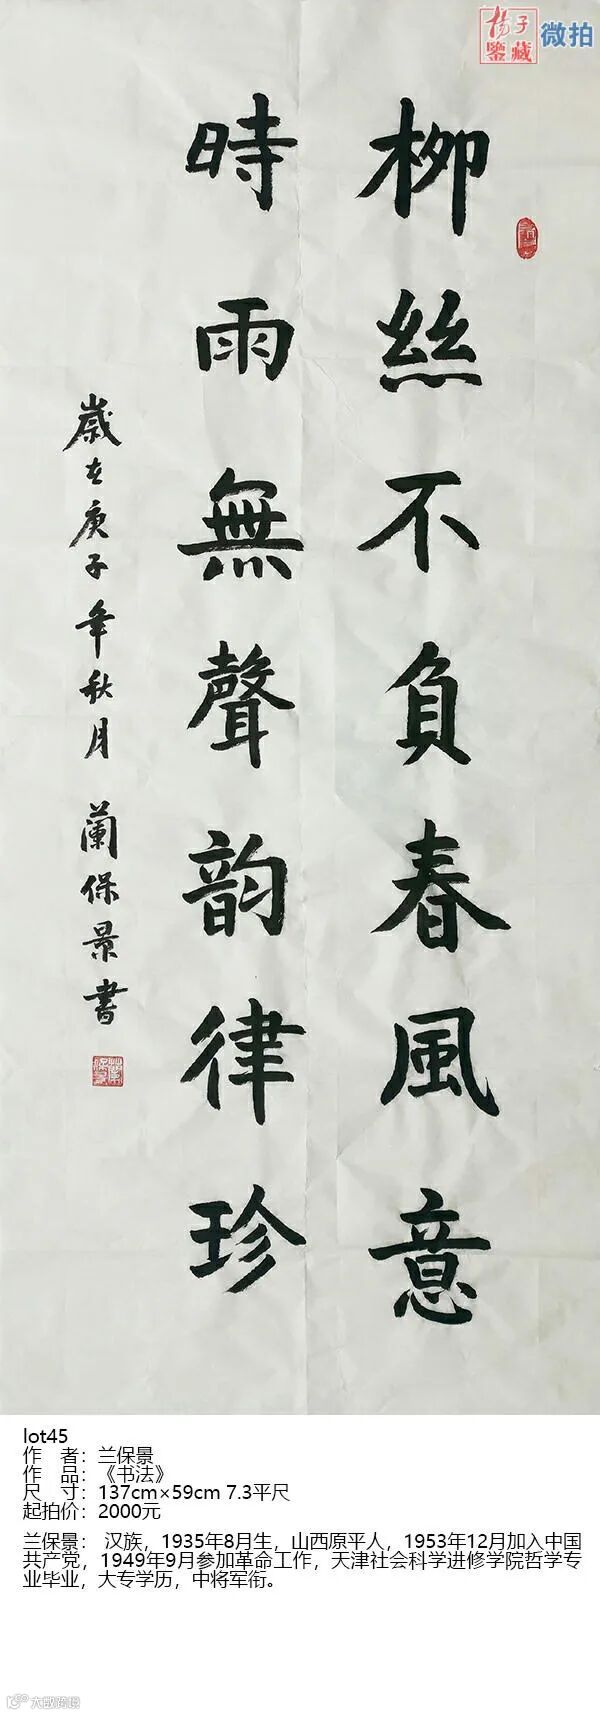 揚子
鑒藏
微拍
柳絲不負春風意
時雨無聲韵律珍
歲在庚子年秋月 蘭保景書
lot45
作 者：兰保景
作 品：《书法》
尺 寸：137cm×59cm 7.3平尺
起拍价：2000元
兰保景： 汉族，1935年8月生，山西原平人，1953年12月加入中国
共产党，1949年9月参加革命工作，天津社会科学进修学院哲学专
业毕业，大专学历，中将军衔。
大啟跨境